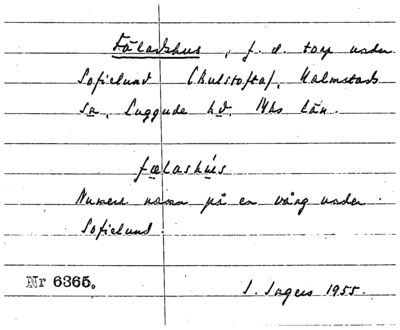 Fäladshus, f. d. torp under
Sofielund (Hulstofta), Halmstads
sn, Luggude hd. Mhs län.
fælashús
Numera namn på en vång under
Sofielund.
Nr 6365.
I. Ingers 1955.